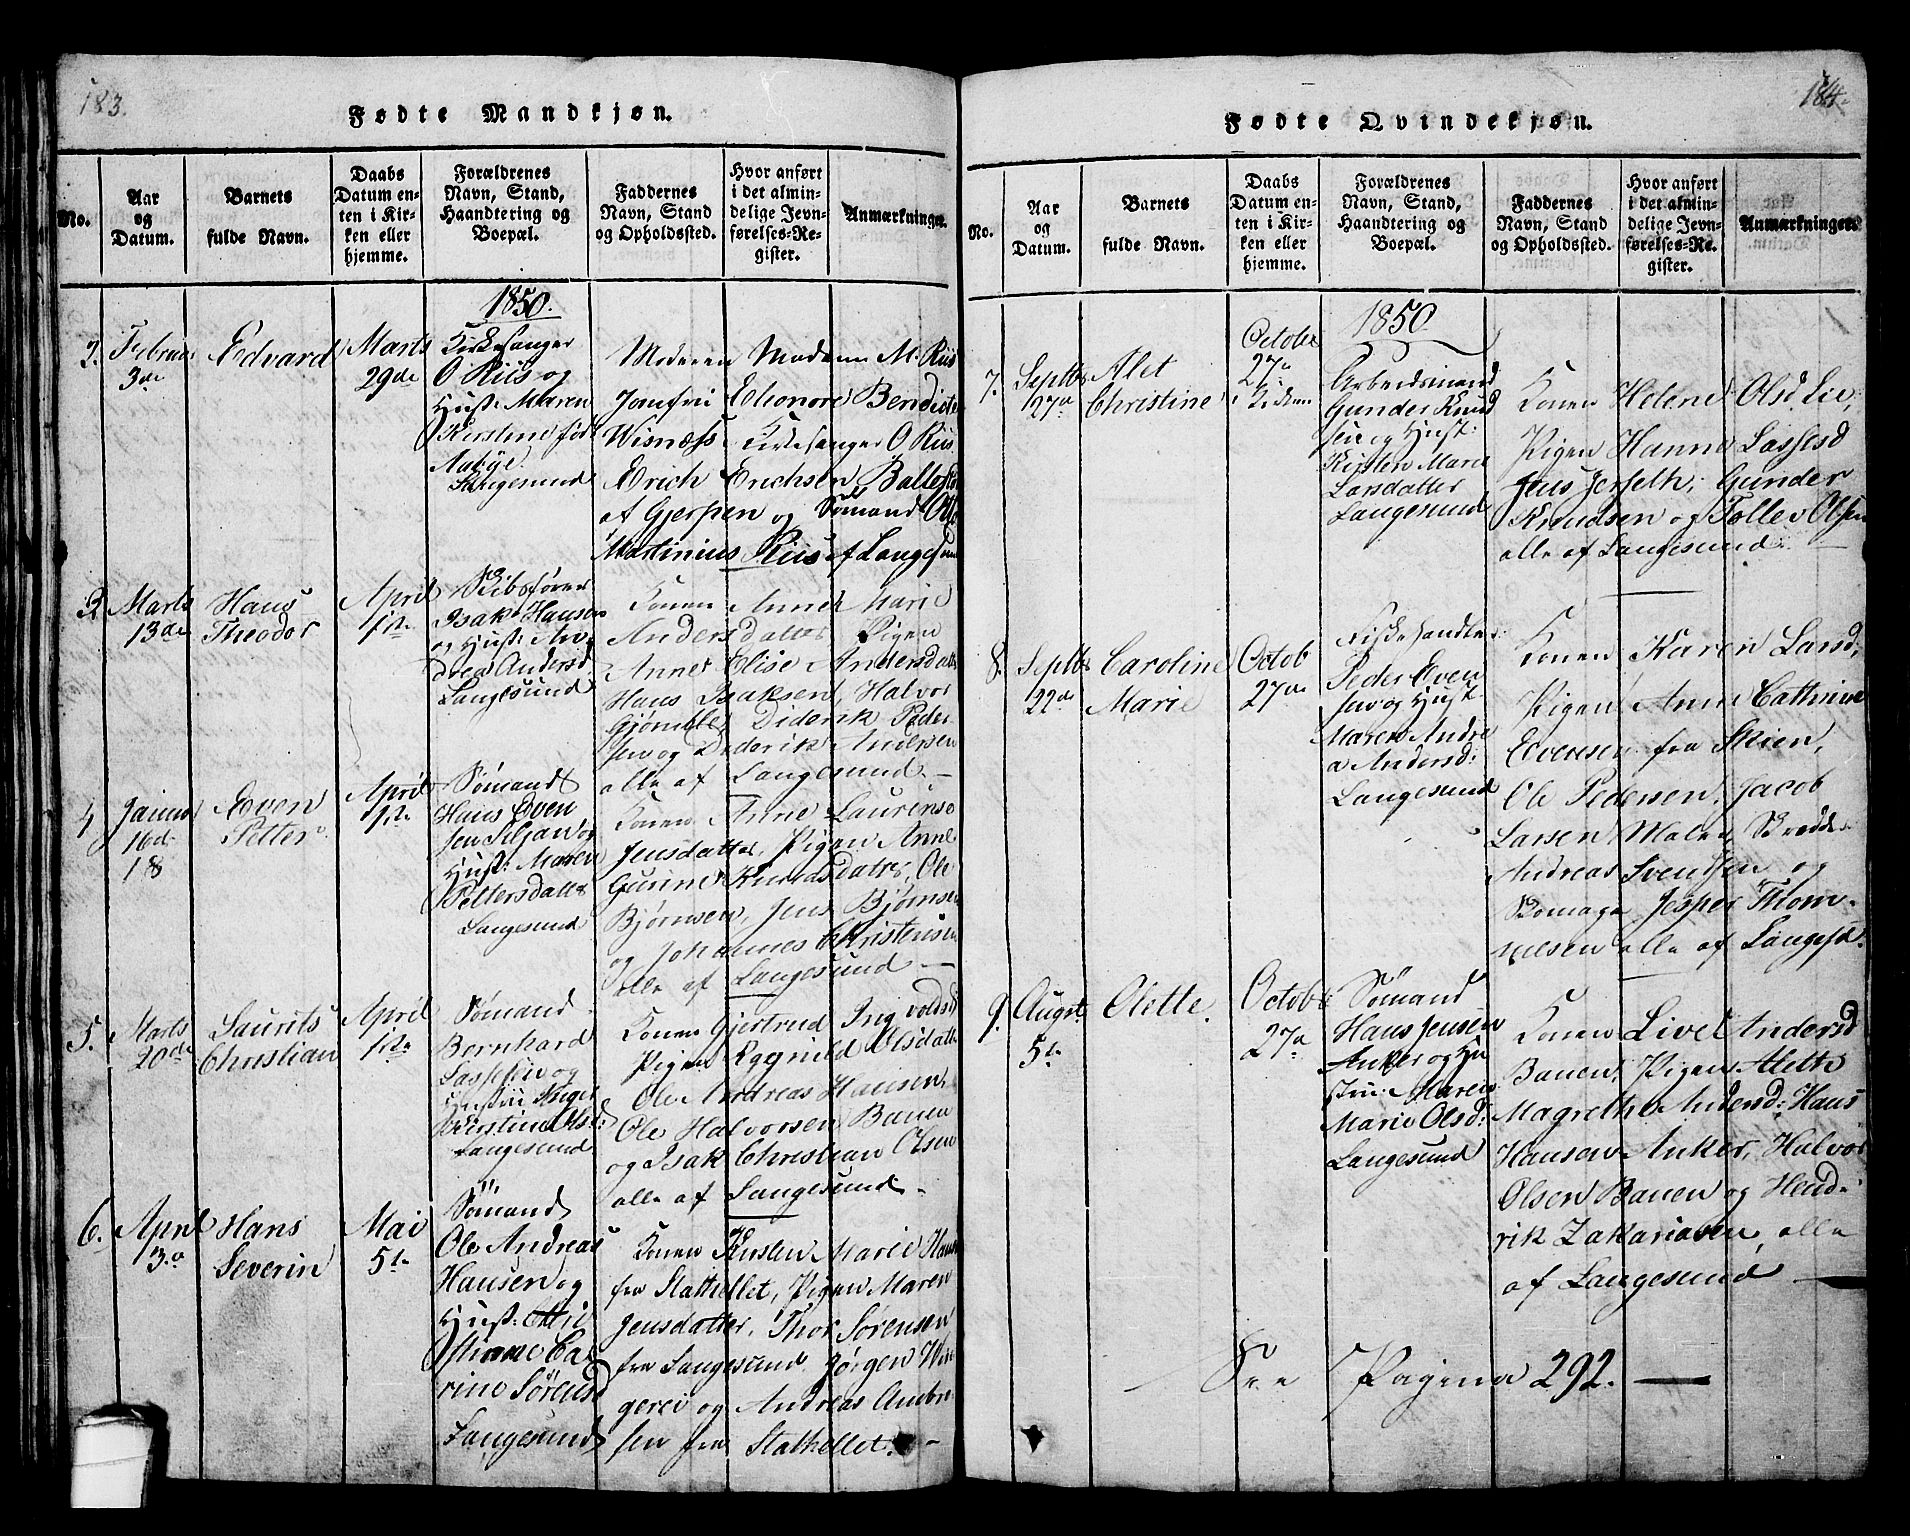 183.
Fødte Mandkjøn.
No.
Aar
og
Datum.
Barnets
fulde Navn.
Daabs
Datum en-
ten i Kir-
ken eller
hjemme.
Forældrenes
Navn, Stand,
Haandtering og
Boepæl.
Faddernes
Navn, Stand
og Opholdssted.
Hvor anført
i det almin-
delige Jevn-
førelses-Re-
gister.
Anmærkninger.
1850.
2.
Februar
3de
Edvard
Marts
29de
Kirkesanger
O Riis og
Hust: Maren
Kirstine fød
Langesund
Moderen Madam M. Riis
Jomfru Elionore Bendicte
Wisnæss Kirkesanger O Riis
Erich Erichsen Balle
af Gjerpen og Sømand Otto
Martinius Riis af Langesun
3.
Marts
13de
Hans
Theodor
April
1te
Skibsfører
Isak Hansen
og Hust: An-
drea Andersd
Langesund
Konen Anne Marie
Andersdatter Pigen
Anne Elise Andersdatt
Hans Isaksen, Halvor
Gjømle, Diderik Peder-
sen og Diderik Andersen
alle af Langesund.
4
Januar
16de
18
Even
Petter
April
1te
Sømand
Hans Even
sen Siljan og
Hust: Maren
Pettersdatt
Langesund
Konen Anne Laurense
Jensdatter, Pigen Anne
Gurine Knudsdatter, Ole
Bjørnsen, Jens Bjørnsen
og Johannes Christensen
alle af Langesund
5.
Marts
20de
Laurits
Christian
April
1te
Sømand
Bernhard
Lassesen og
Hustru Inger
Kirstine Olsd:
Langesund
Konen Gjertrud Ingvoldsd
Pigen Eggnild Olsdatt
Ole Andreas Hansen,
Ole Halvorsen Bauen
og Isak Christian Olsen
alle af Langesund.
6.
April
3.
Hans
Severin
Mai
5te
Sømand
Ole Andreas
Hansen og
Hust:
Stinne Ca
rine Sørensd
Langesund
Konen Kirsten Marie Hans
fra Stathellet, Pigen Maren
Jensdatter, Thor Sørensen
fra Langesund Jørgen Win
gerei og Andreas Ambro
sen fra Stathellet.
184.
Fødte Qvindekjøn.
No.
Aar
og
Datum.
Barnets
fulde Navn.
Daabs
Datum en-
ten i Kir-
ken eller
hjemme.
Forældrenes
Navn, Stand,
Haandtering og
Boepæl.
Faddernes
Navn, Stand
og Opholdssted.
Hvor anført
i det almin-
delige Jevn-
førelses-Re-
gister.
Anmærkninger.
1850
7.
Septb
27de
Alet
Christine
October
27de
i Kirken
Arbeidsmand
Gunder Knud
sen og Hust:
Kirsten Marie
Larsdatter
Langesund
Konen Helene Olsd. Lie,
Pigen Hanne Lassesd
Jens Jerseth, Gunder
Knudsen og Tollev Olsen
alle af Langesund.
8.
Septb
22de
Caroline
Marie
Octob
27de
Fiskehandler
Peder Even
sen og Hust
Maren Andre
a Andersd:
Langesund
Konen Karen Larsd,
Pigen Anne Cathrine
Evensen fra Skien,
Ole Pedersen, Jacob
Larsen Maler, Skrædder
Andreas Svendsen og
Skomager Jesper Thom-
melsen alle af Langesd.
9.
Augst
5te
Olette.
Octob
27de
Sømand
Hans Jensen
Anker og Hu
stru: Maren
Marie Olsd:
Langesund
Konen Live Andersd
Bauen, Pigen Aleth
Magrethe Andersd: Hans
Hansen Anker, Halvor
Olsen Bauen og Hend-
rik Zakariasen, alle
af Langesund
See Pagina 292.